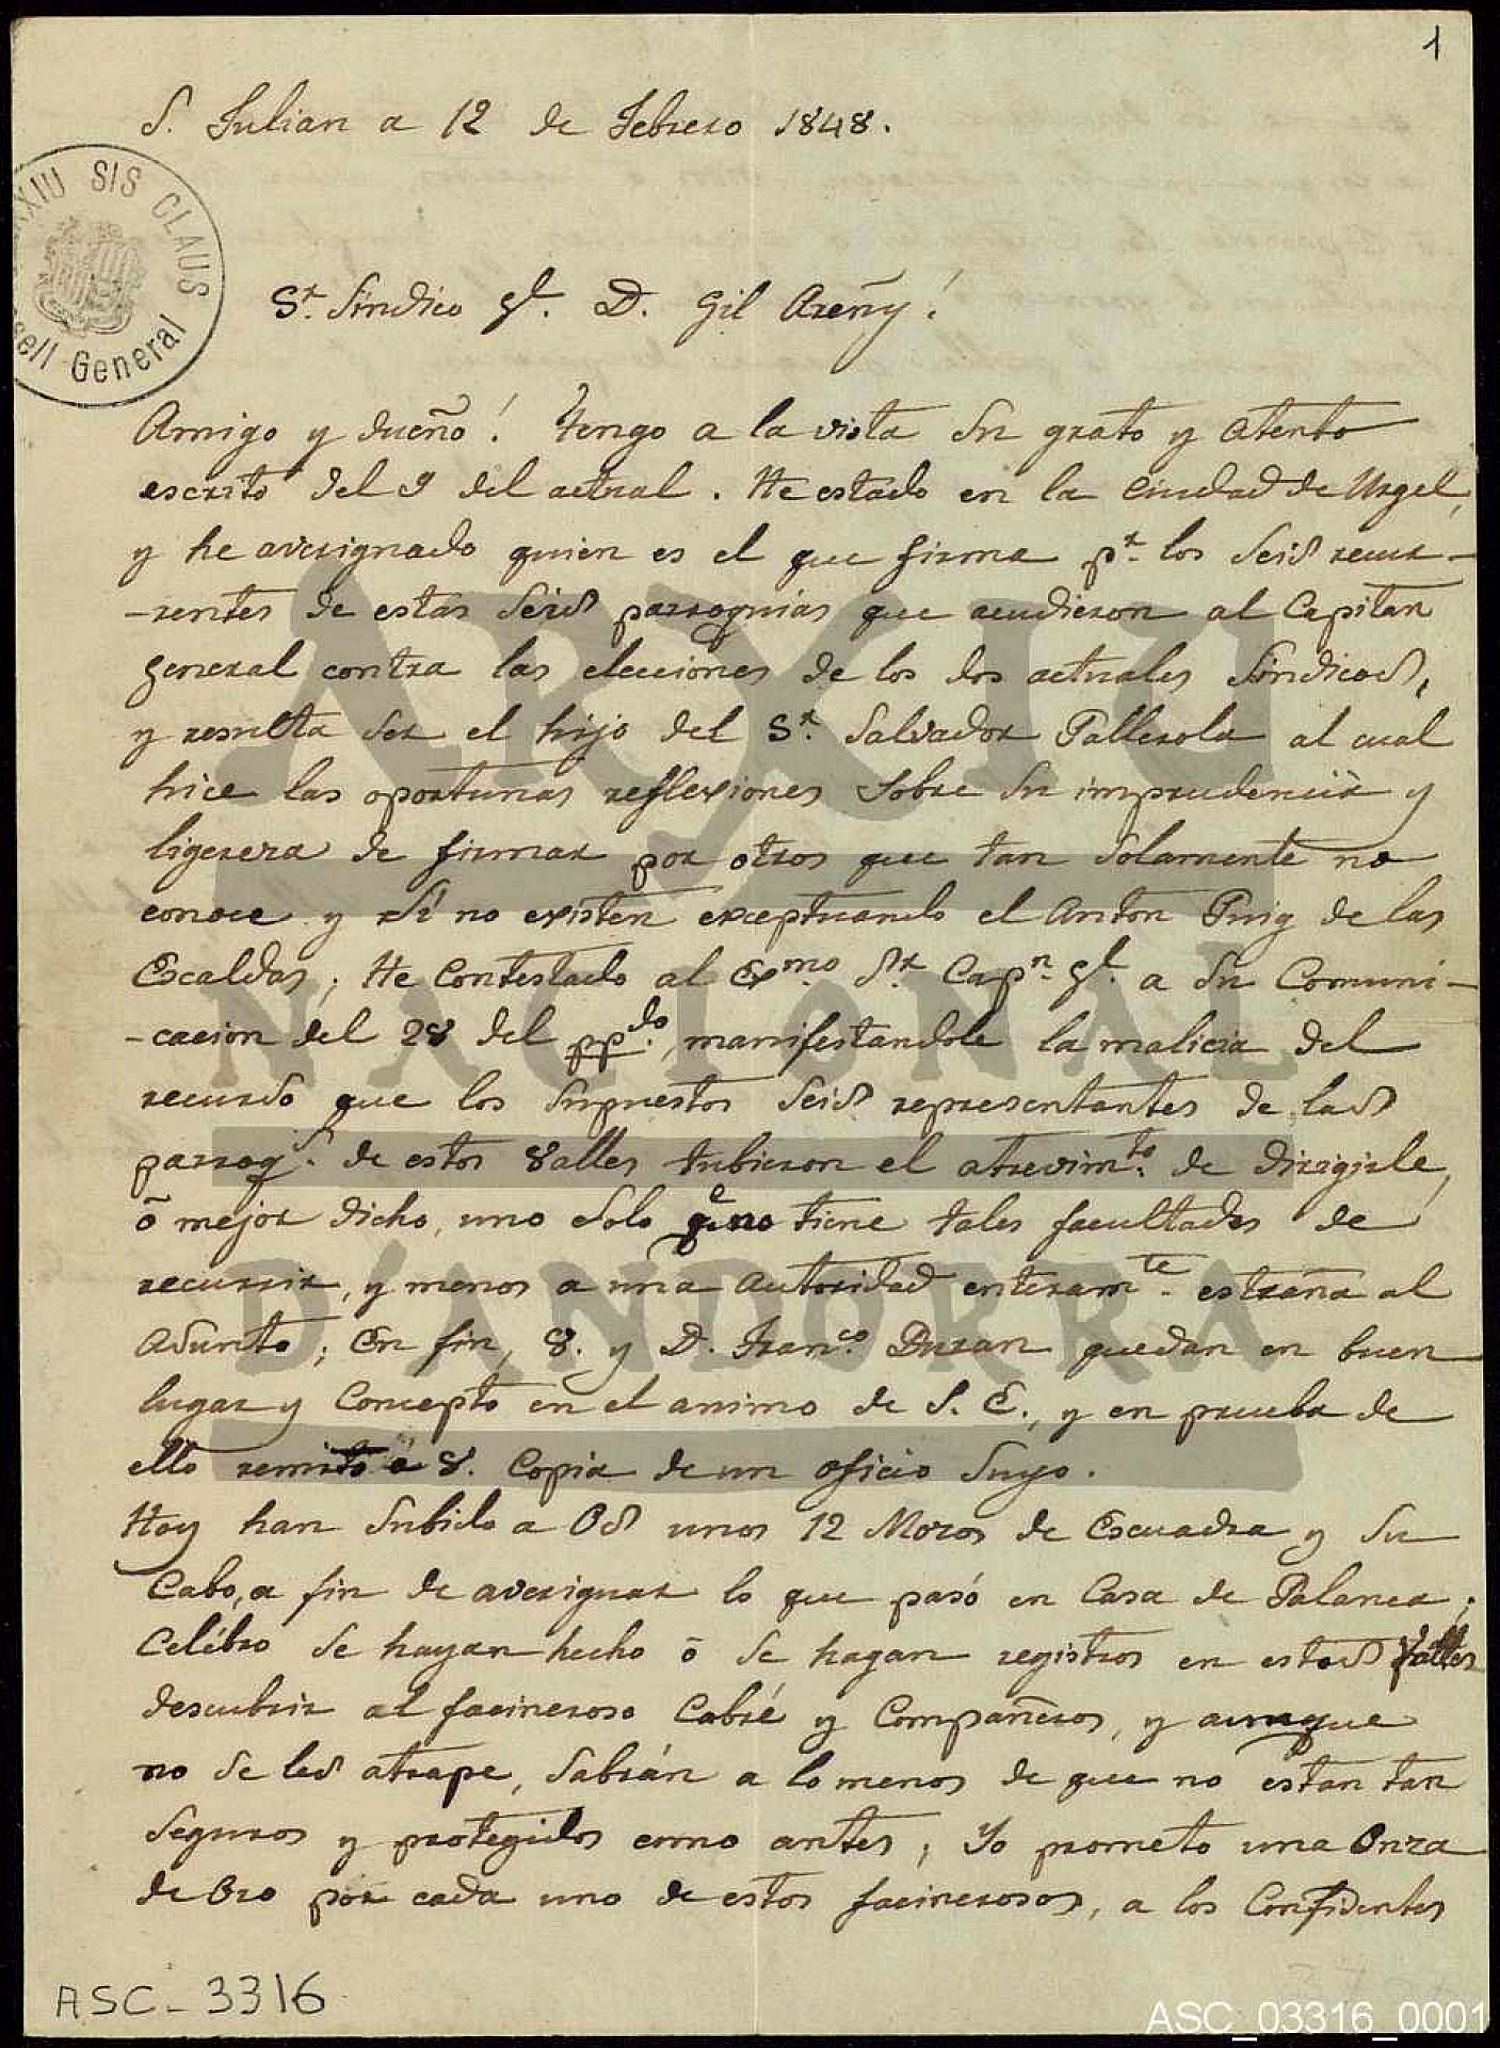 1
S. Julian a 12 de Febrero 1848.
ARXIU SIS CLAUS
Consell General
Sr. Sindico Gl. D. Gil Areñy!
Amigo y dueño! Tengo a la vista su grato y atento
escrito del 9 del actual. He estado en la Ciudad de Urgel,
y he averignado quien es el que firma pr. los seis recur-
-rentes de estas seis parroquias que acudieron al Capitan
general contra las elecciones de los dos actuales Sindicos,
y resulta ser el hijo del Sr. Salvador Pallerola al cual
hice las oportunas reflexiones sobre su imprudencia y
ligereza de firmar por otros que tan solamente no
conoce y si no existen exceptuando el Anton Puig de las
Escaldas; He Contestado al Exmo. Sr. Capn. Gl. a su Comuni-
-cacion del 28 del ppdo., manifestandole la malicia del
recurso que los supuestos seis representantes de las
parroqs. de estos Valles tubieron el atrevimto. de dirigirle,
ó mejor dicho, uno solo qe no tiene tales facultades de
recurrir, y menos a una Autoridad enteramte. estraña al
Asunto; En fin, V. y D. Franco. Duran quedan en buen
lugar y Concepto en el animo de S. E., y en prueba de
ello remito a V. Copia de un oficio suyo.
Hoy han subido a Os unos 12 Mozos de Escuadra y su
Cabo, a fin de averiguar lo que pasó en Casa de Palanca;
Celébro se hayan hecho ó se hagan registros en estos Valles
descubrir al facineroso Cabré y Compañeros, y aunque
no se les atrape, sabrán a lo menos de que no estan tan
seguros y protegidos como antes; Yo prometo una Onza
de Oro por cada uno de estos facinerosos, a los Confidentes
ARXIU
NACIONAL
D'ANDORRA
ASC-3316
ASC_03316_0001